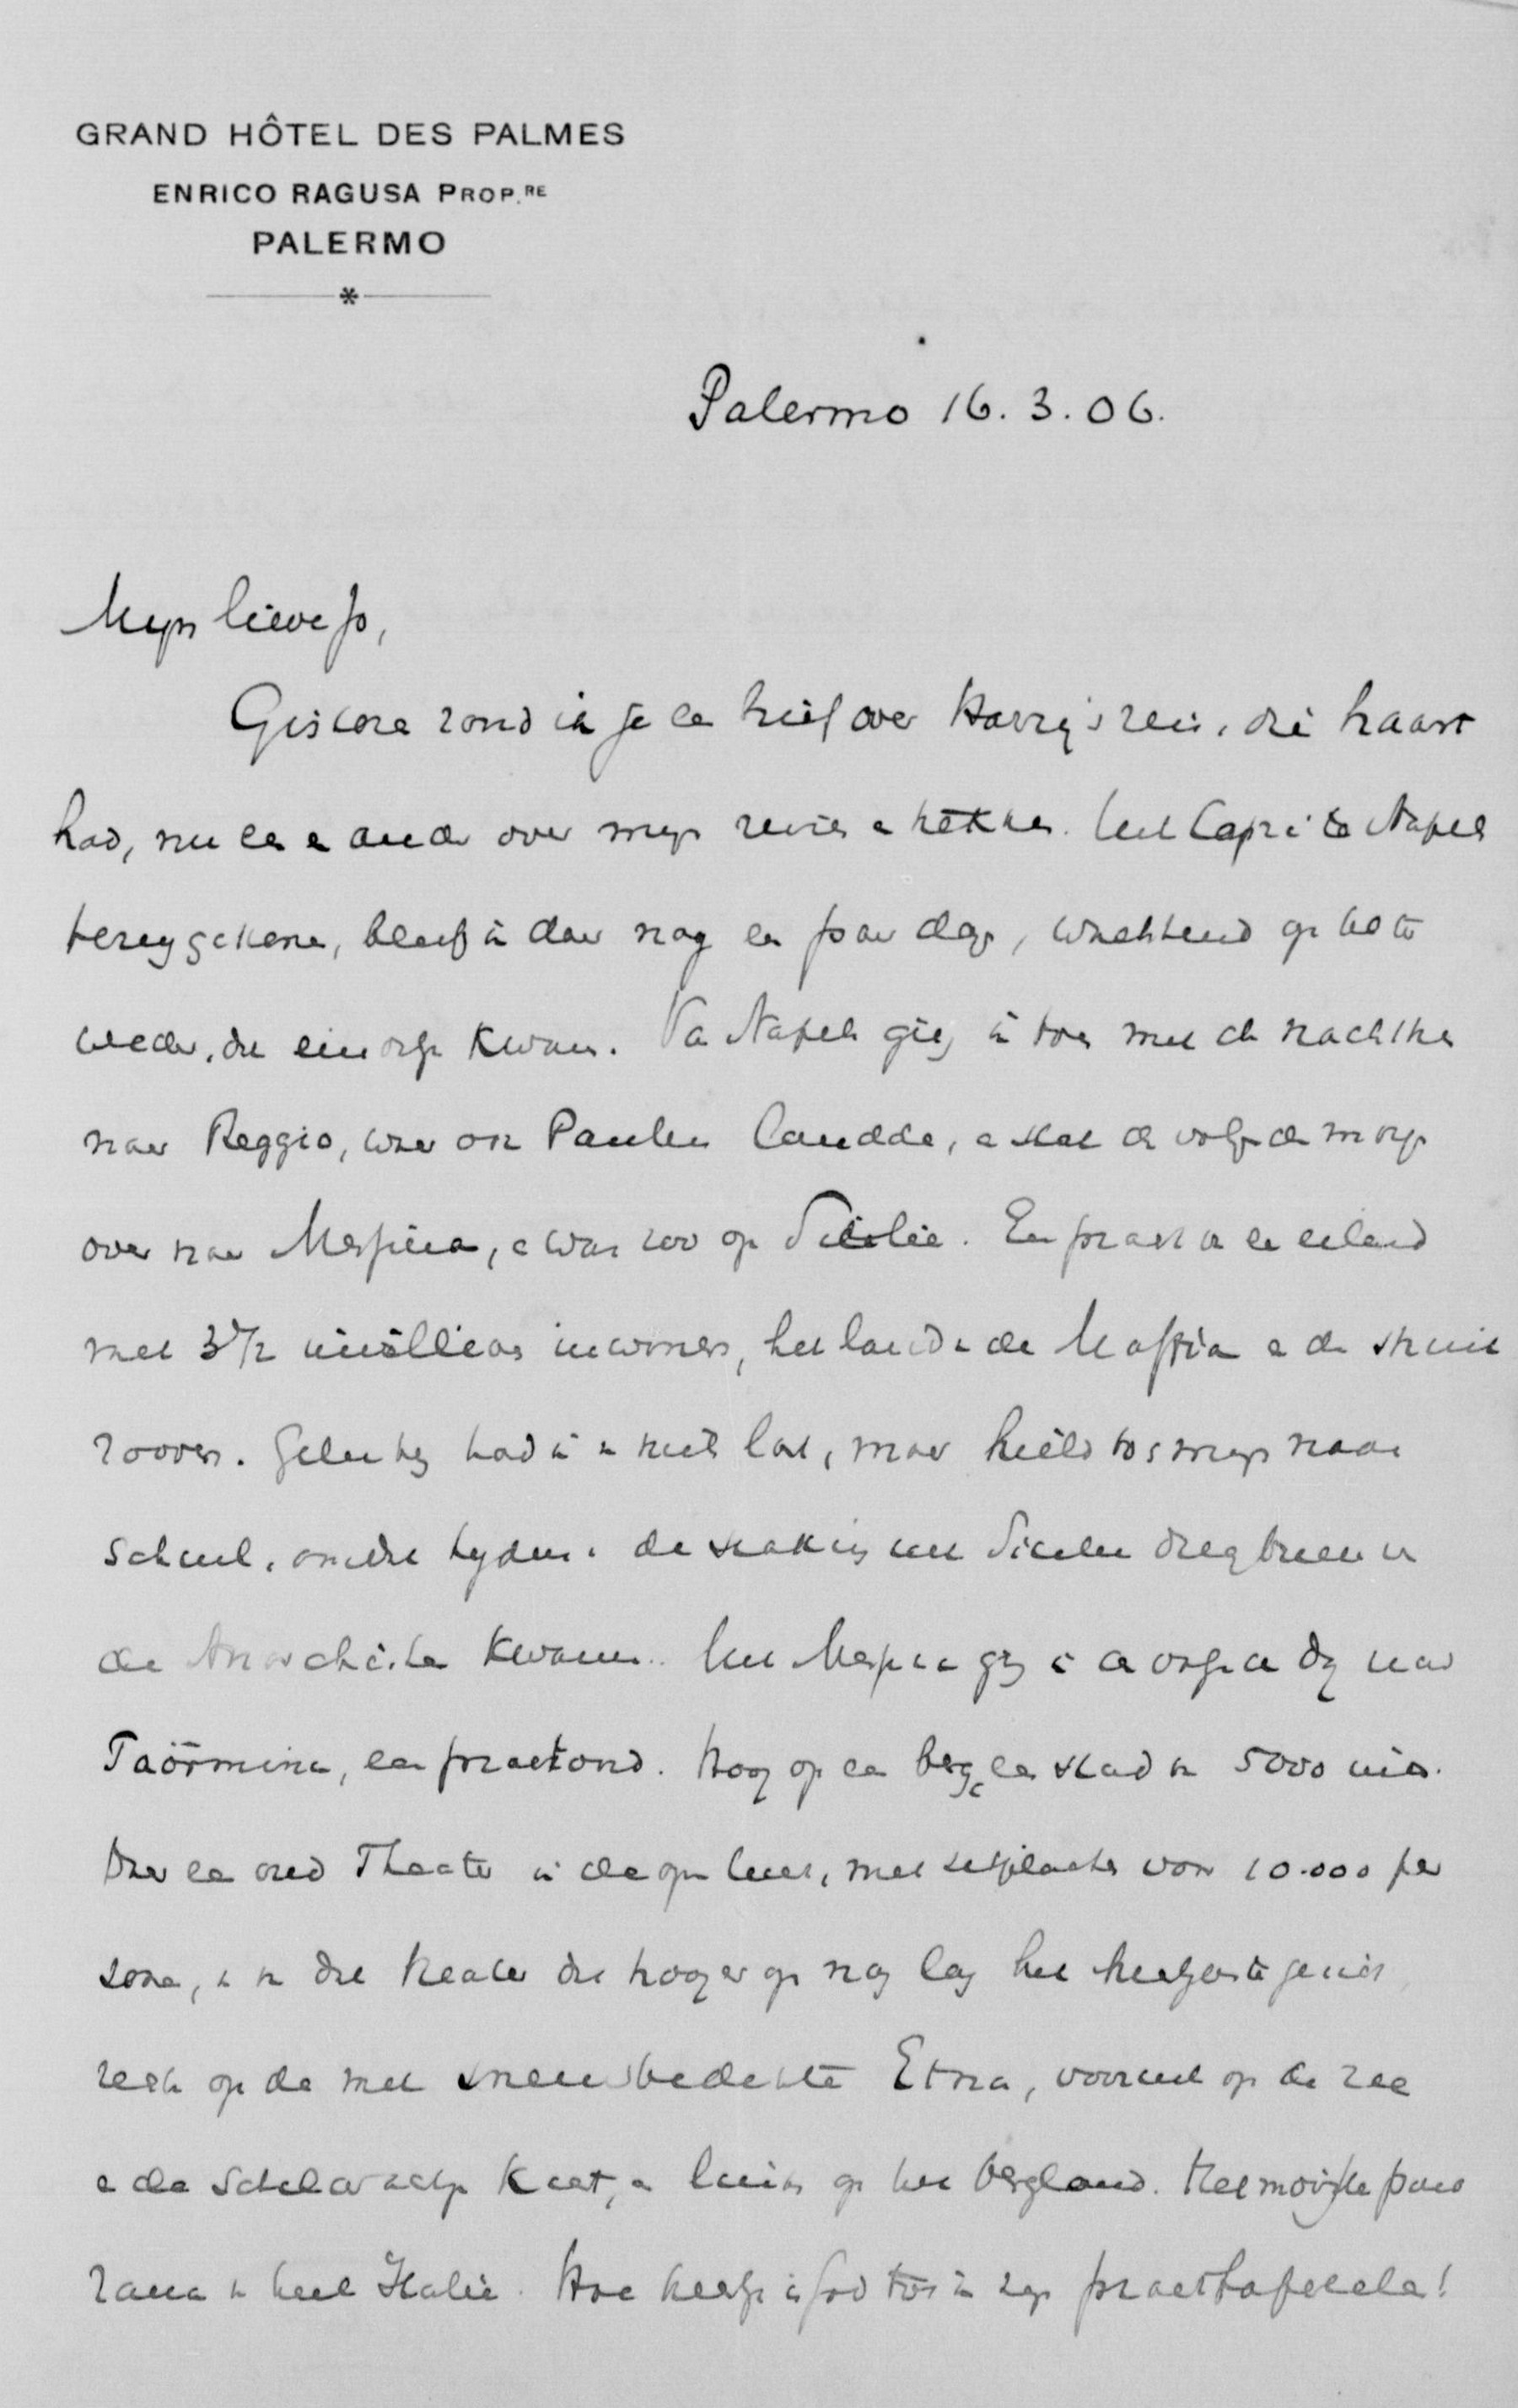 GRAND HÔTEL DES PALMES
ENRICO RAGUSA PROP.RE
PALERMO
Palermo 16.3.06.
Mijn lieve Jo,
Gisteren zond ik je een brief over Harry's reis, die haast
had, nu een ander over mijn reizen en trekken. Uit Capri te Napels
teruggekeerd, bleef ik daar nog een paar dagen, wachtend op beter
weder, dat eindelijk kwam. Van Napels ging ik toen met den nachttrein
naar Reggio, waar ook Paulus landde, en stak den volgenden morgen
over naar Messina, en was zoo op Sicilie. Een pracht van een eiland
met 3½ millioen inwoners, het land van de Maffia en de struik
roovers. Gelukkig had ik er niets last, maar hield toch mijn naam
schuil, omdat tijdens de staking uit Sicilie dreigbrieven van
de Anarchisten kwamen. Uit Messina ging ik den volgenden dag naar
Taörmina, een prachtoord. Hoog op een berg een stad van 5000 inw.
Daar een oud Theater in de open lucht, met zitplaatsen voor 10.000 per
sonen, en van dat theater dat hooger op nog lag het heerlijkste gezicht
rechts op de met sneeuwbedekte Etna, vooruit op de zee
en de schilderachtige kust, en links op het bergland. Het mooiste pano
rama in heel Italië. Hoe heerlijk is God toch in zijn prachtafereelen!